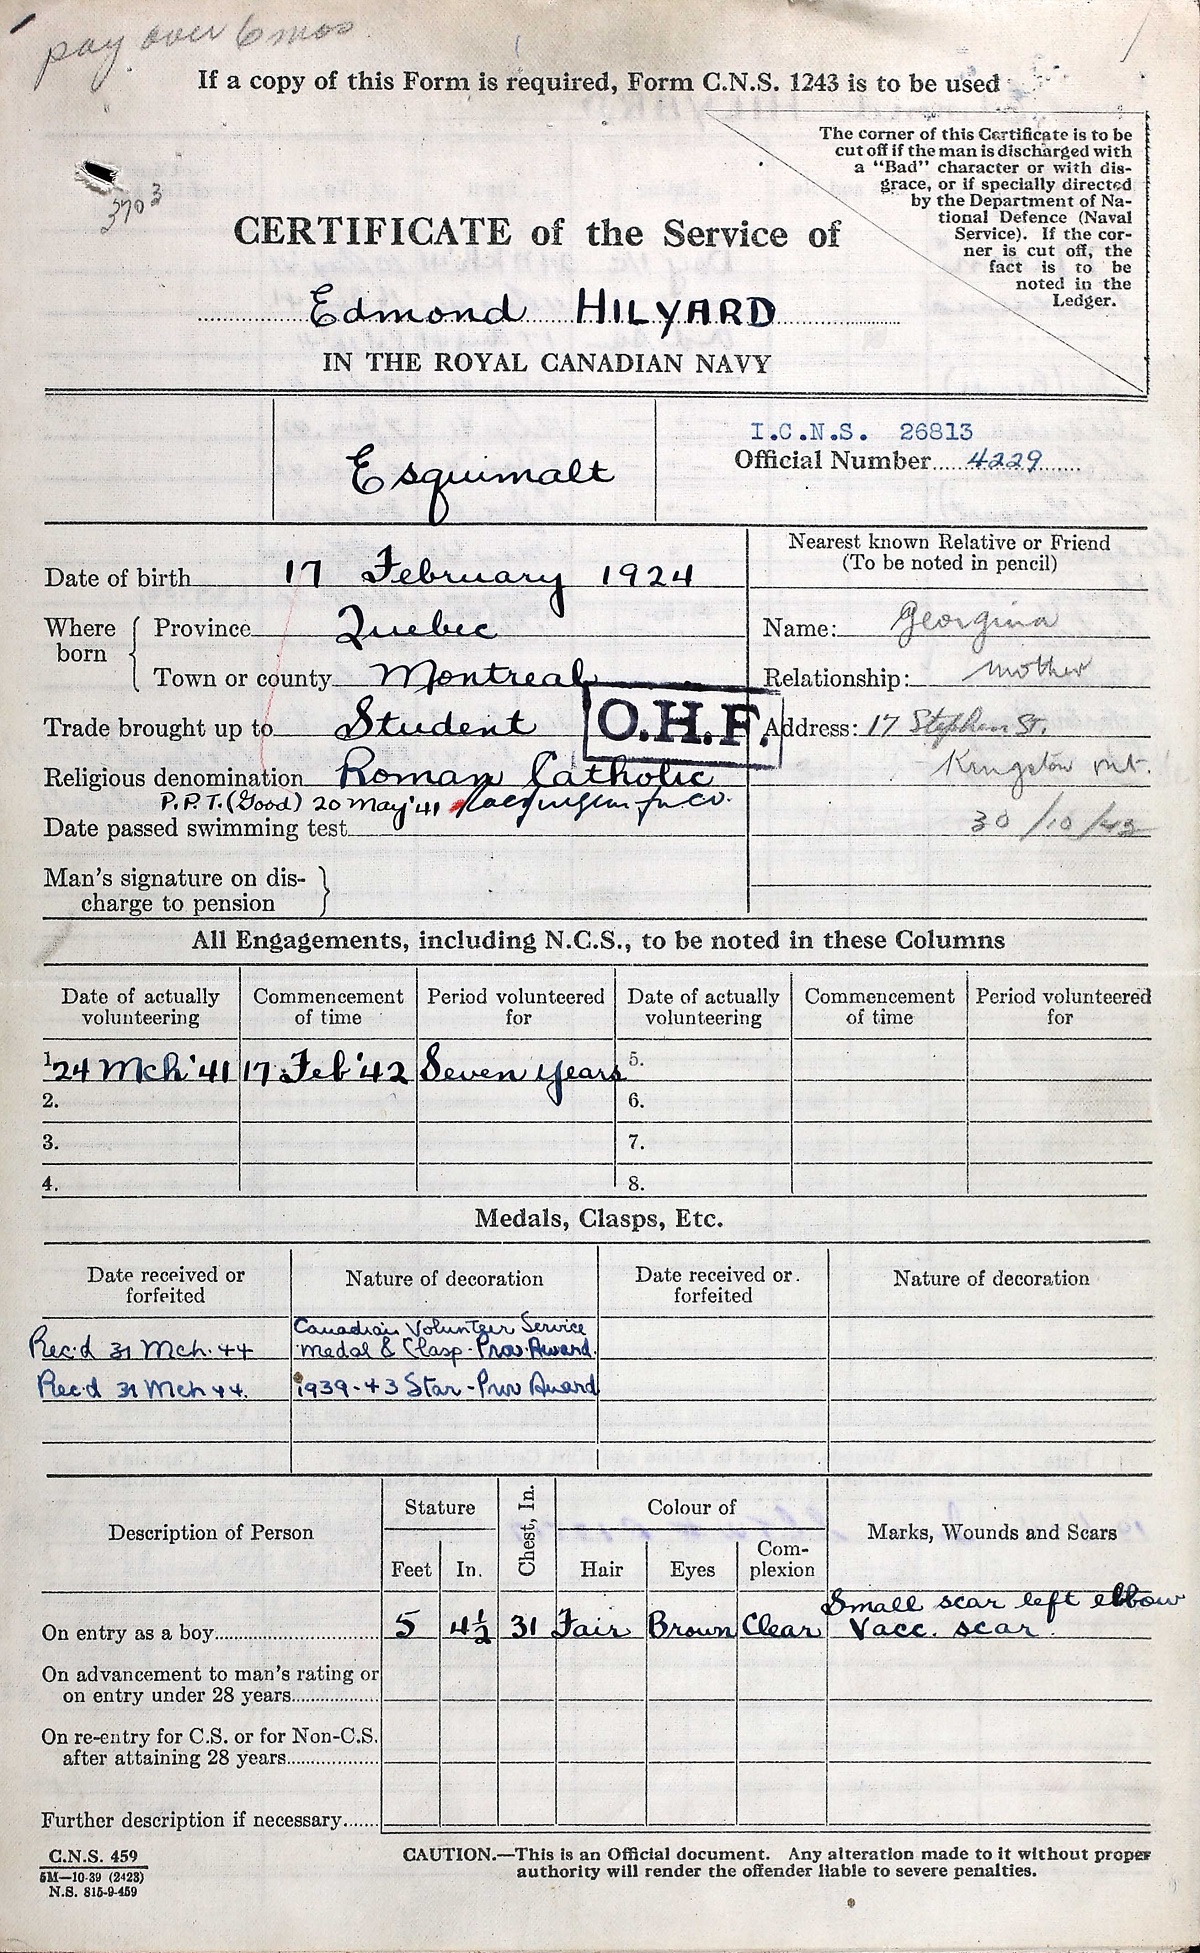 pay over 6 mos
If a copy of this Form is required, Form C.N.S. 1243 is to be used
The corner of this Certificate is to be
cut off if the man is discharged with
a "Bad" character or with dis-
grace, or if specially directed
by the Department of Na-
tional Defence (Naval
Service). If the cor-
ner is cut off, the
fact is to be
noted in the
Ledger.
3703
CERTIFICATE of the Service of
Edmond HILYARD
IN THE ROYAL CANADIAN NAVY
Esquimalt
I.C.N.S. 26813
Official Number 4229
Nearest known Relative or Friend
(To be noted in pencil)
Date of birth 17 February 1924
Where born
Province Quebec
Name: Georgina
Town or county Montreal
Relationship: mother
Trade brought up to Student
O.H.F.
Address: 17 Stephen St.
Religious denomination Roman Catholic
Kingston Ont.
P.P.T. (Good) 20 May '41
Date passed swimming test
30/10/42
Man's signature on dis-
charge to pension
All Engagements, including N.C.S., to be noted in these Columns
Date of actually volunteering Commencement of time Period volunteered for Date of actually volunteering Commencement of time Period volunteered for
1. 24 Mch '41 17 Feb '42 Seven years 5.
2. 6.
3. 7.
4. 8.
Medals, Clasps, Etc.
Date received or forfeited Nature of decoration Date received or forfeited Nature of decoration
Canadian Volunteer Service
Rec'd 31 Mch. 44 medal & Clasp - Prov. Award.
Rec'd 31 Mch 44. 1939-43 Star - Prov Award
Description of Person
Stature
Feet In.
Chest, In.
Colour of
Hair Eyes Com-plexion
Marks, Wounds and Scars
Small scar left elbow
On entry as a boy 5 4½ 31 Fair Brown Clear Vacc. scar.
On advancement to man's rating or
on entry under 28 years
On re-entry for C.S. or for Non-C.S.
after attaining 28 years
Further description if necessary
C.N.S. 459
5M—10-39 (2423)
N.S. 815-9-459
CAUTION.—This is an Official document. Any alteration made to it without proper
authority will render the offender liable to severe penalties.